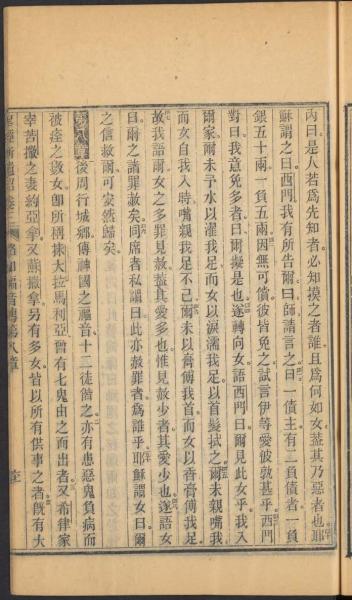 內曰是人若為先知者必知摸之者誰且為何如女葢其乃惡者也耶
穌謂之曰西門我有所告爾曰師請言之曰一債主有二負債者一負
銀五十兩一負五兩因無可償彼皆免之試言伊等愛彼孰甚乎西門
對曰我意免多者曰爾擬是也遂轉向女語西門曰爾見此女乎我入
爾家爾未予水以濯我足而女以淚濡我足以首髮拭之爾未親我
而女自我入時嘴親我足不已爾未以膏傅我首而女以香膏傅我足
故我語爾女之多罪見赦葢其愛多也惟見赦少者其愛少也遂語女
曰爾之諸罪赦矣同席者私謂曰此亦赦罪者為誰乎耶穌謂女曰爾
之信救爾可安然歸矣
第八章後周行城鄉傳神國之福音十二徒偕之亦有患惡鬼負病而
被痊之數女卽所稱抹大拉馬利亞曾有七鬼由之而出者又希律家
宰苦撒之妻約亞拿又蘇撒拿另有多女皆以所有供事之者旣有大